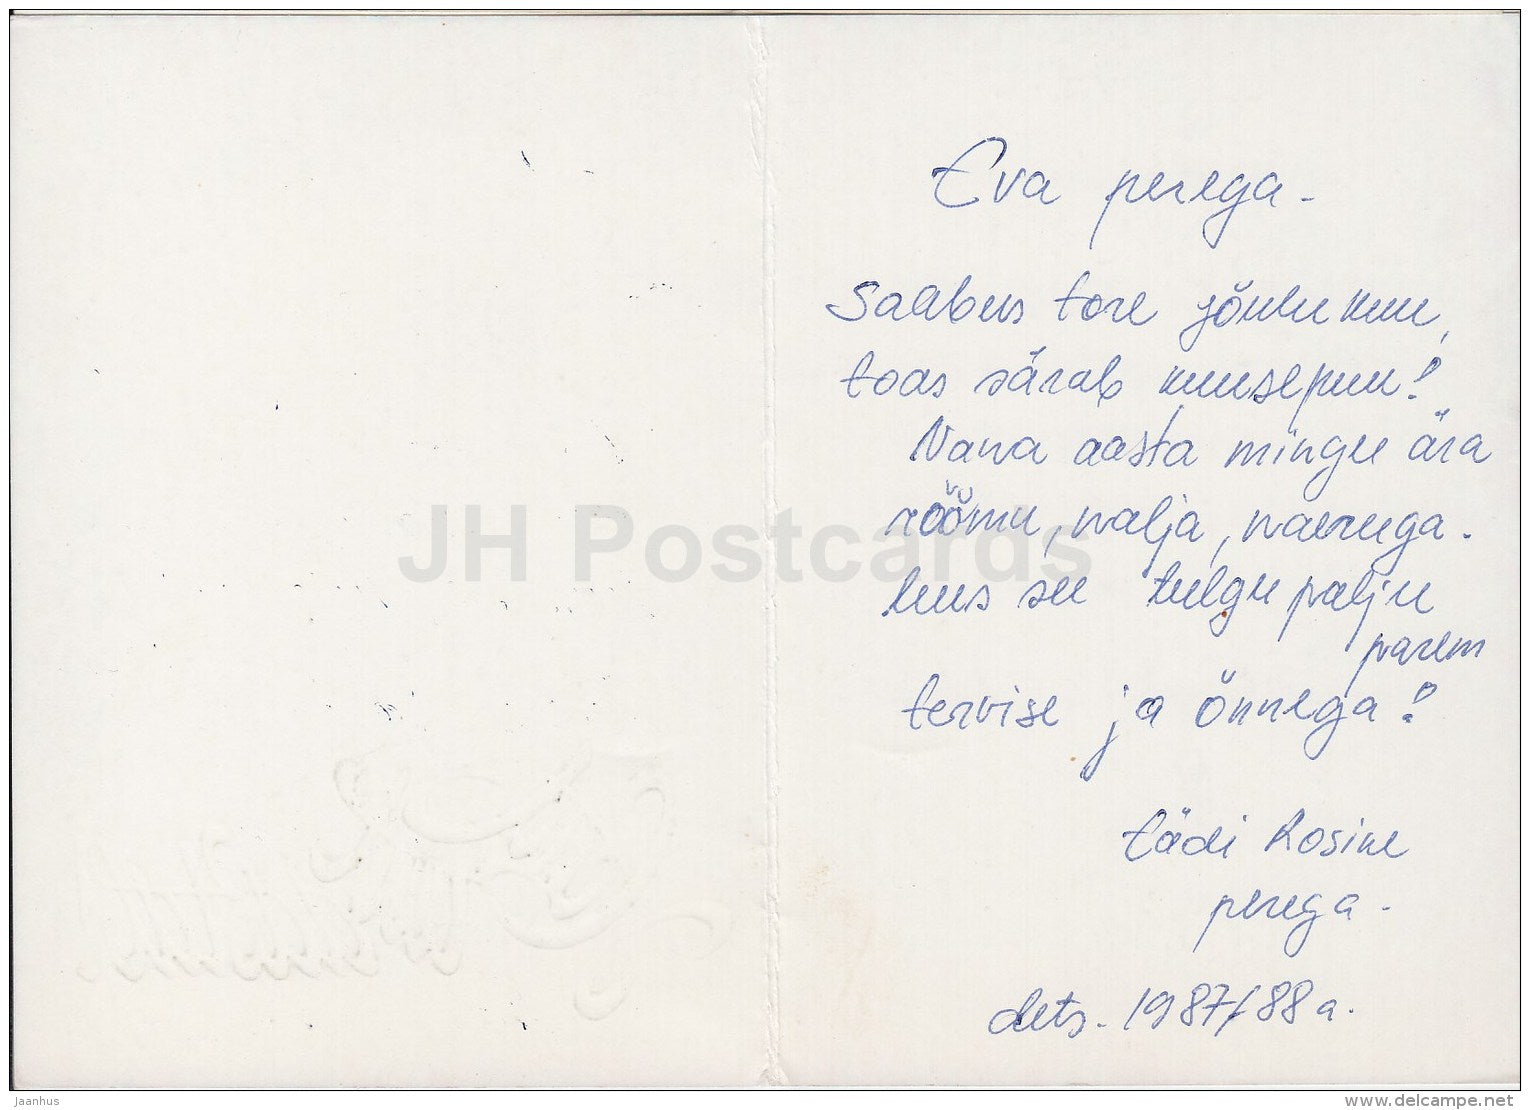 Eva perega.
Saabus tore jõulukuu,
toas särab kuusepuu!
Vana aasta mingu ära
rõõmu, nalja, naeruga.
Uus see tulgu palju
parem
tervise ja õnnega!
tädi Rosine
perega.
dets. 1987/88 a.
JH Postcards
Jaanhus
www.delcampe.net